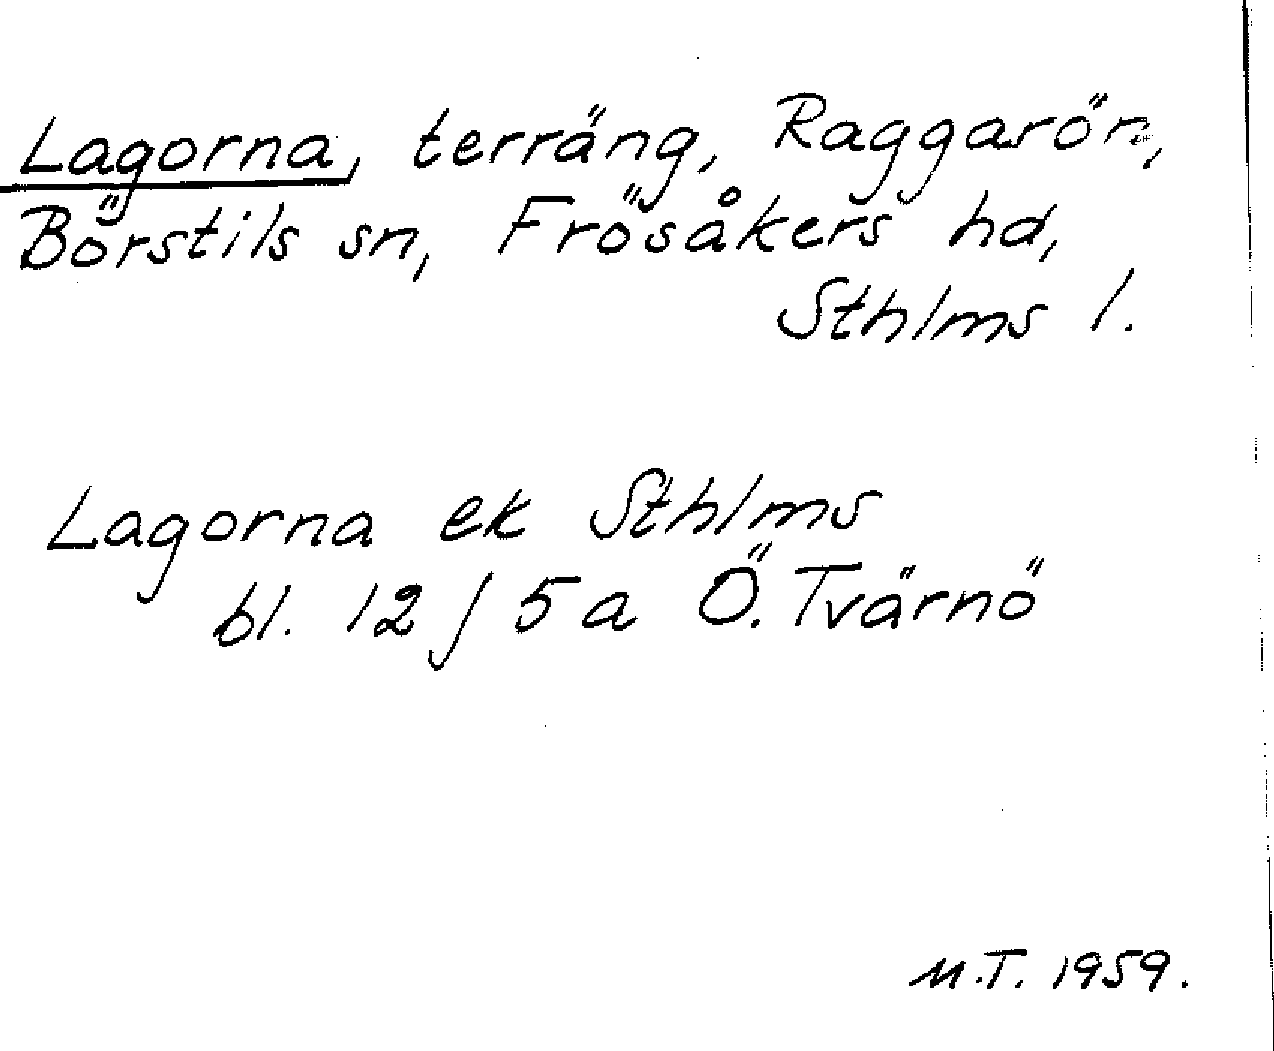 Lagorna, terräng, Raggarön,
Börstils sn, Frösåkers hd,
Sthlms l.
Lagorna ek Sthlms
bl. 12 J 5a Ö. Tvärnö
M.T. 1959.